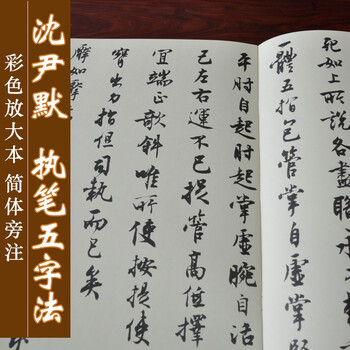 沈尹默 执笔五字法
彩色放大本 简体旁注
如上所说各尽
一体五指包管掌自虚掌
平肘自起肘起掌虚腕自活
已左右运不已捉管高低择
宜端正欹斜唯所使按提使
臂出力指但司执而已矣